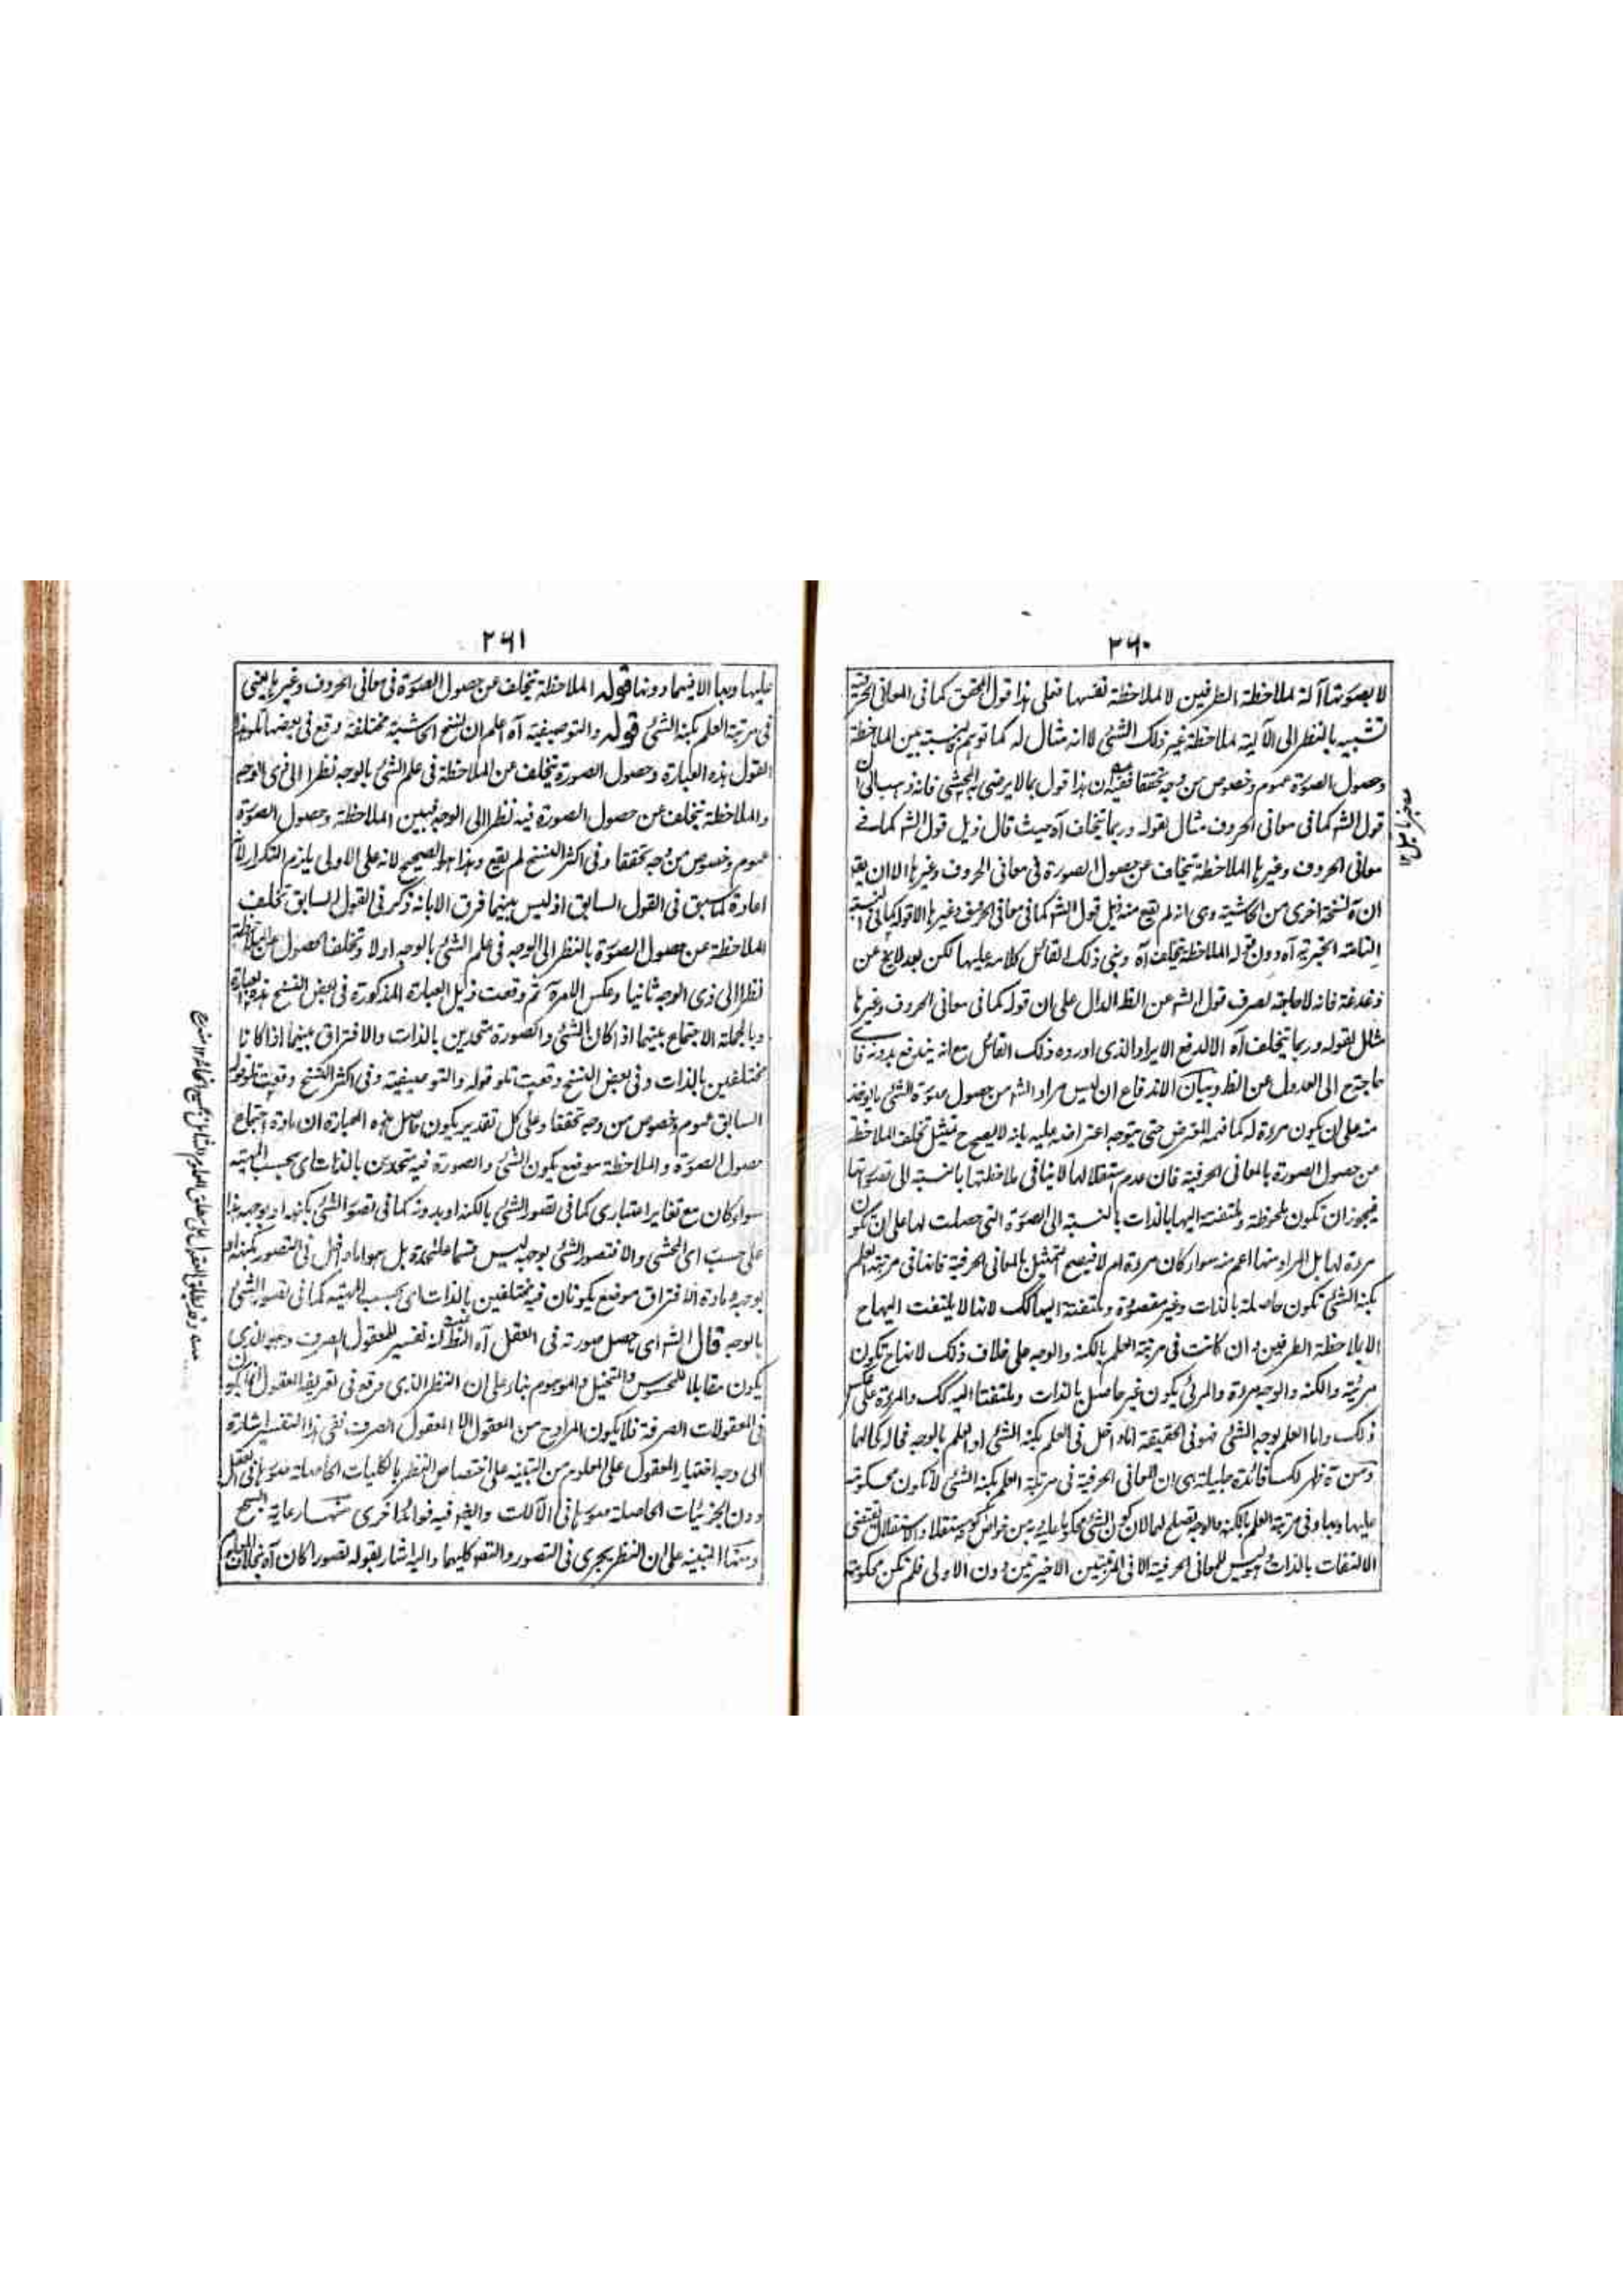 ۲۶۰
لا بصورتها آلة لملاحظة الطرفين لا ملاحظة نفسها فعلى هذا قول المحقق كما فى المعانى الحرفية
تشبيه بالنظر الى الآلية لملاحظة غير ذلك الشئ لا انه مثال له كما توهم فالنسبة بين الملاحظة
وحصول الصورة عموم وخصوص من وجه تحققا ففيه ان هذا قول بما لا يرضى به المحشى فانه ذهب الى ان
قول الشه كما فى معانى الحروف مثال لقوله وربما يتخلف آه حيث قال ذيل قول الشه كما فے
معانى الحروف وغيرها الملاحظة يتخلف عن حصول الصورة فى معانى الحروف وغيرها الا ان يقـ
ان ة نسخة اخرى من الحاشية وهى انه لم يقع منه ذيل قول الشه كما فى معانى الحروف وغيرها الا قوله كما فى النسبة
التامة الخبرية آه دون قوله الملاحظة يتخلف آه وبنى ذلك القائل كلامه عليها لكن بعد لا يخ عن
دغدغة فانه لا حاجة لصرف قول الشه عن الظ الدال على ان قوله كما فى معانى الحروف وغيرها
مثال لقوله وربما يتخلف آه الا لدفع الايراد الذى اورده ذلك القائل مع انه يندفع بدونه فاے
حاجة ح الى العدول عن الظ وبيان الاندفاع ان ليس مراد الشه من حصول صورة الشئ
منه على ان يكون مرءة له كما فهمه المعترض حتى يتوجه اعتراضه عليه بانه لا يصح تمثيل تخلف الملاحظة
عن حصول الصورة بالمعانى الحرفية فان عدم استقلالها لا ينافى ملاحظتها بالنسبة الى تصوراتها
فيجوز ان تكون ملحوظة وملتفتة اليها بالذات بالنسبة الى الصورة التى حصلت لها على ان تكون
مرءة لها بل المراد منها اعم منه سواء كان مرءة ام لا فيصح التمثيل بالمعانى الحرفية فانها فى مرتبة العلم
بكنه الشئ تكون حاصلة بالذات وغير مقصودة وملتفتة اليها كك لانها لا يلتفت اليها ح
الا بملاحظة الطرفين وان كانت فى مرتبة العلم بالكنه والوجه على خلاف ذلك لانها ح تكون
مرئية والكنه والوجه مرءة والمرئى يكون غير حاصل بالذات وملتفتا اليه كك والمرءة على عكس
ذلك واما العلم بوجه الشئ فهو فى الحقيقة اما داخل فى العلم بكنه الشئ او العلم بالوجه فحاله كحالها
ومن ة ظهر لك فائدة جليلة هى ان المعانى الحرفية فى مرتبة العلم بكنه الشئ لا تكون محكومة
عليها وبها وفى مرتبة العلم بالكنه والوجه تصلح لهما لان كون الشئ محكوما عليه وبه من خواص كونه مستقلا والاستقلال يقتضى
الالتفات بالذات وليس للمعانى الحرفية الا فى المرتبتين الاخيرتين دون الاولى فلم تكن محكومة
۲۶۱
عليها وبها الا فيهما دونها قوله الملاحظة يتخلف عن حصول الصورة فى معانى الحروف وغيرها يعنى
فى مرتبة العلم بكنه الشئ قوله والتوصيفية آه اعلم ان نسخ الحاشية مختلفة وقع فى بعضها تلو هذا
القول هذه العبارة وحصول الصورة يتخلف عن الملاحظة فى علم الشئ بالوجه نظرا الى ذى الوجه
والملاحظة يتخلف عن حصول الصورة فيه نظرا الى الوجه فبين الملاحظة وحصول الصورة
عموم وخصوص من وجه تحققا وفى اكثر النسخ لم يقع وهذا هو الصحيح لانه على الاولى يلزم التكرار لانه
اعادة لما سبق فى القول السابق اذ ليس بينهما فرق الا بانه ذكر فى القول السابق تخلف
الملاحظة عن حصول الصورة بالنظر الى الوجه فى علم الشئ بالوجه اولا وتخلف الحصول عن الملاحظة
نظرا الى ذى الوجه ثانيا وعكس الامر ة ثم وقعت ذيل العبارة المذكورة فى بعض النسخ هذه العبارة
وبالجملة الاجتماع بينهما اذ كان الشئ والصورة متحدين بالذات والافتراق بينهما اذا كانا
مختلفين بالذات وفى بعض النسخ وقعت تلو قوله والتوصيفية وفى اكثر النسخ وقعت تلو قوله
السابق عموم وخصوص من وجه تحققا وعلى كل تقدير يكون حاصل هذه العبارة ان مادة اجتماع
حصول الصورة والملاحظة موضع يكون الشئ والصورة فيه متحدين بالذات اى بحسب المهية
سواء كان مع تغاير اعتبارى كما فى تصور الشئ بالكنه او بدونه كما فى تصور الشئ بكنهه او بوجهه هذا
على حسب راى المحشى والا فتصور الشئ بوجهه ليس قسما علٰحدة بل هو اما داخل فى التصور بكنهه او
بوجهه ومادة الافتراق موضع يكونان فيه مختلفين بالذات اى بحسب المهية كما فى تصور الشئ
بالوجه قال الشه اى حصل صورته فى العقل آه الظ انه تفسير للمعقول الصرف وهو الذى
يكون مقابلا للمحسوس والمتخيل والموهوم بناء على ان النظر الذى وقع فى تعريفه المعقول انما يكون
فى المعقولات الصرفة فلا يكون المراد ح من المعقول الا المعقول الصرف ففى هذا التفسير اشارة
الى وجه اختيار المعقول على المعلوم من التنبيه على اختصاص النظر بالكليات الحاصلة صورها فى العقل
دون الجزئيات الحاصلة صورها فى الآلات والغير فيه فوائد اخرى منها رعاية السجع
ومنها التنبيه على ان النظر يجرى فى التصور والتصديق كليهما واليه اشار بقوله تصورا كان آه بخلاف المعلوم